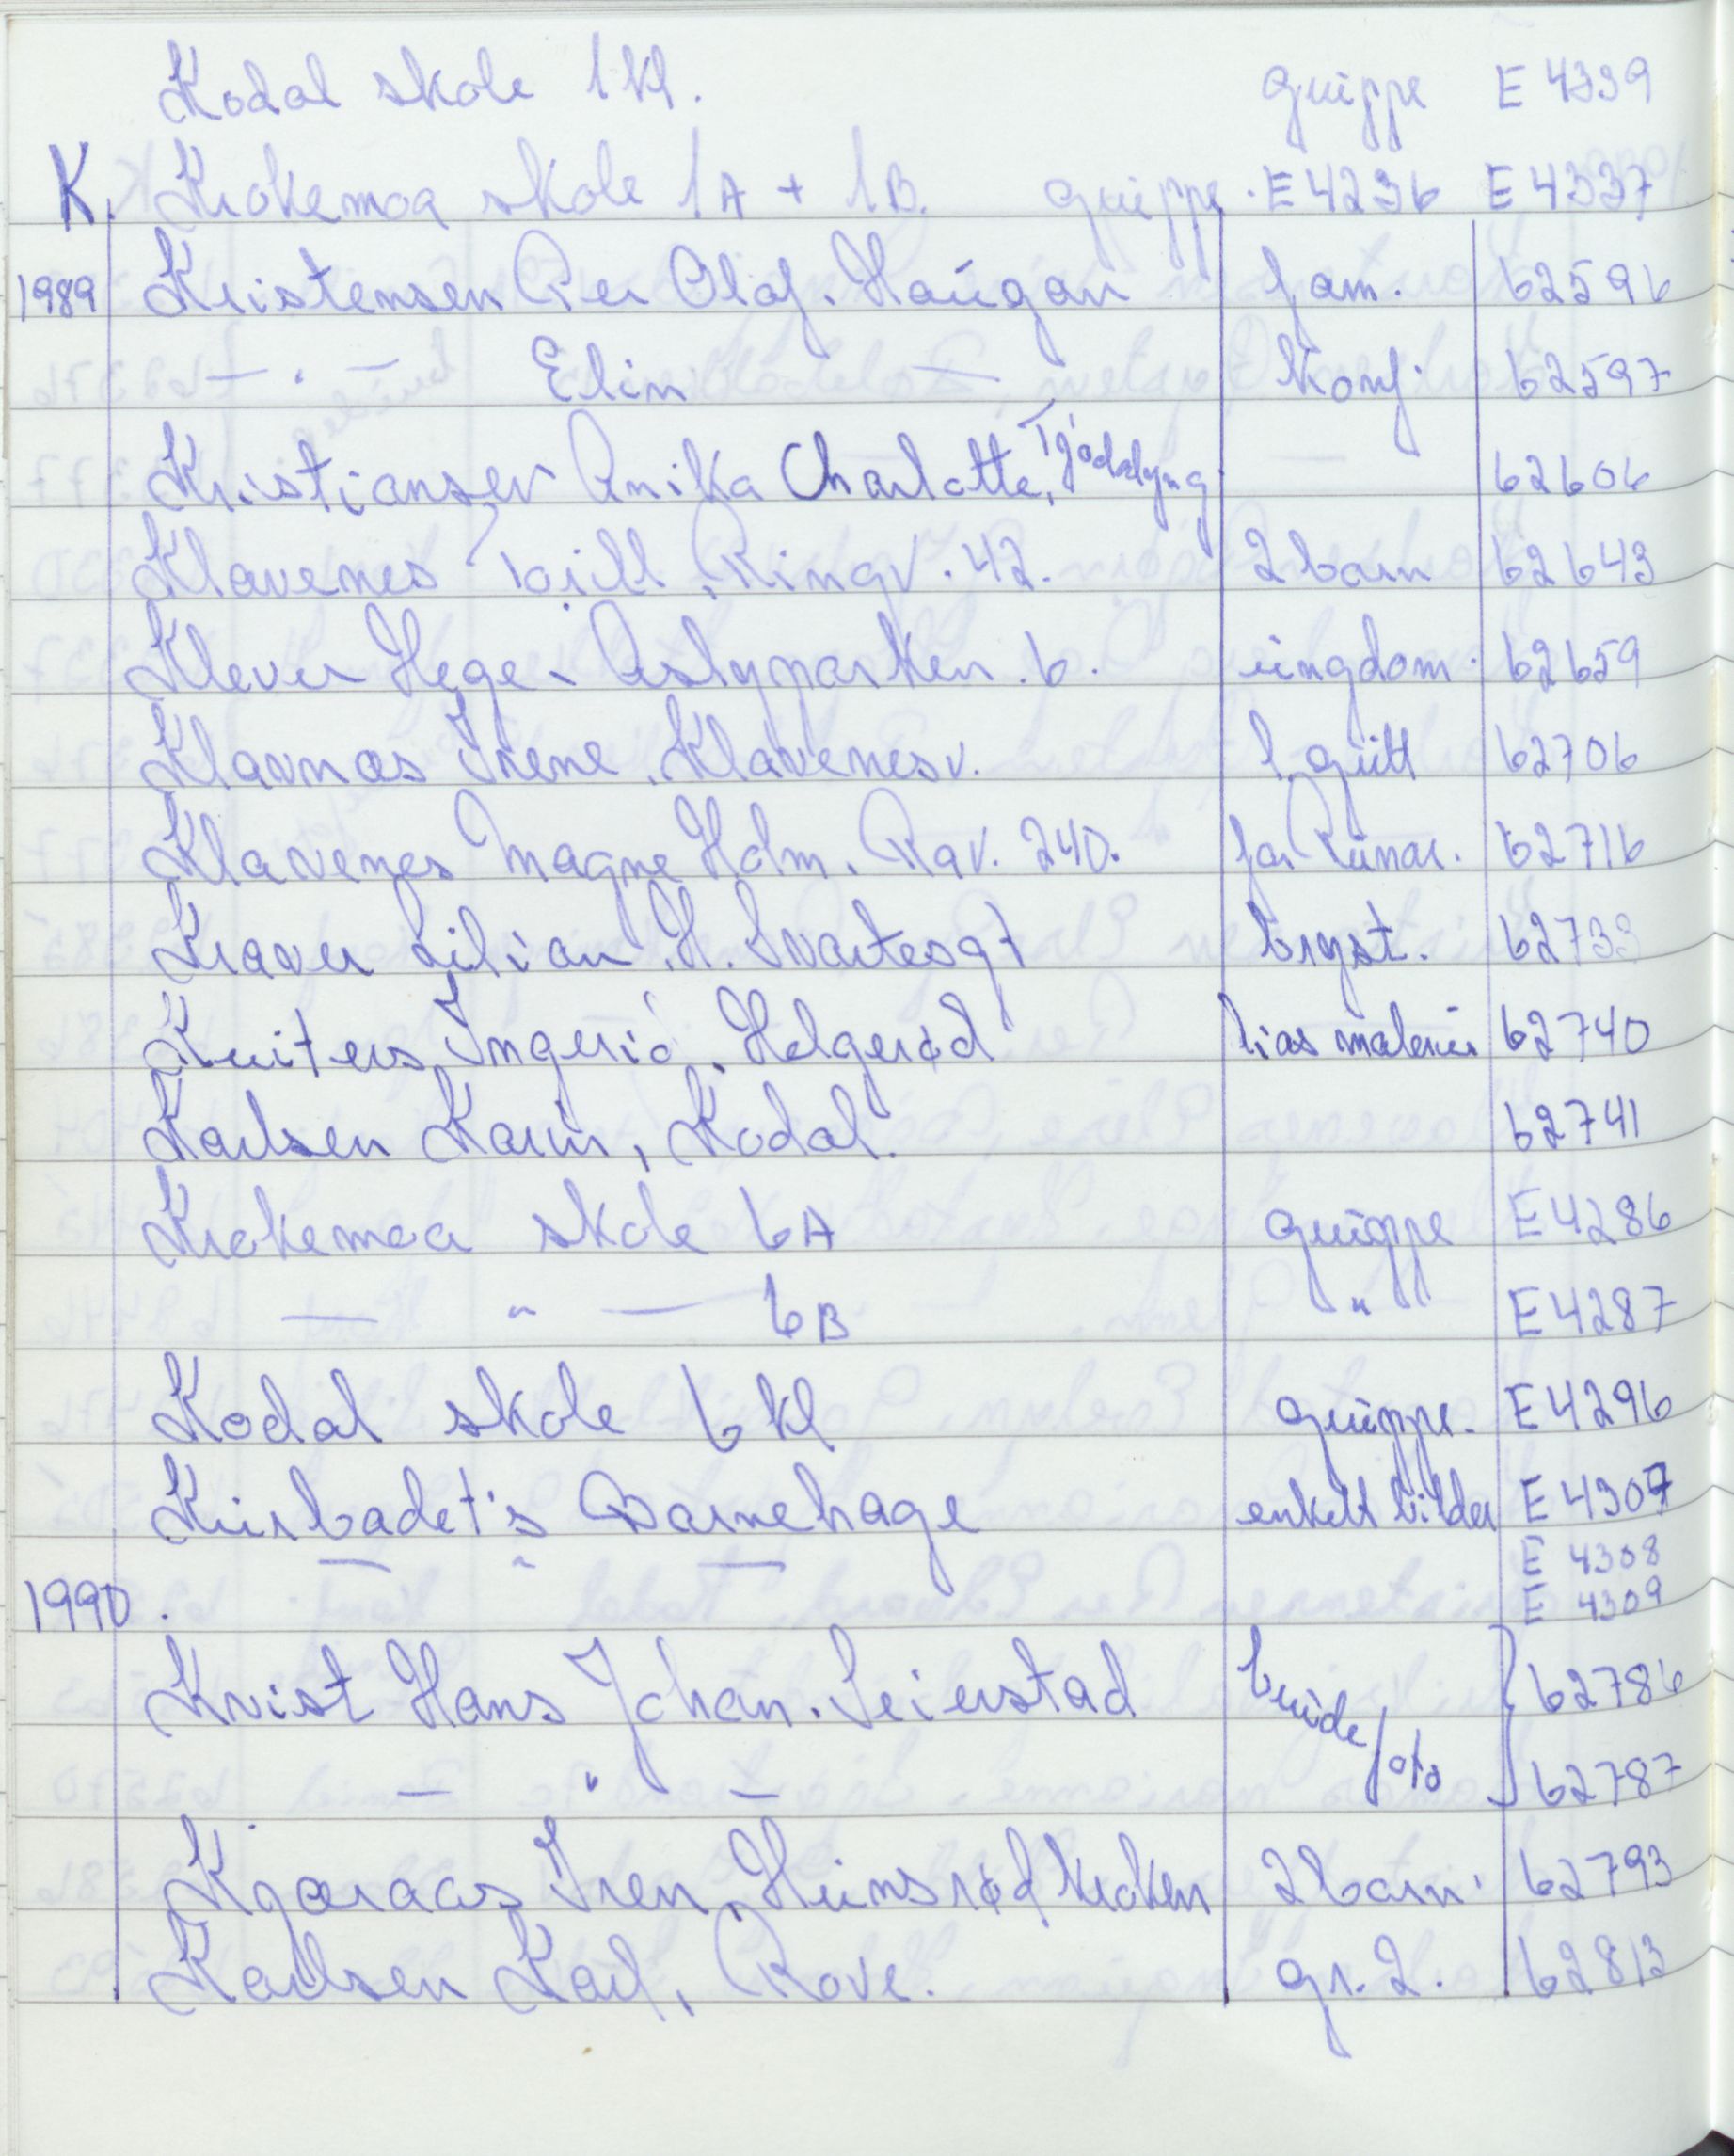 Kodal skole 1 kl. gruppe E 4339
K. Krokemoa skole 1A + 1B. gruppe. E 4236 E 4337
1989 Kristensen Per Olaf. Haugan fam. 62596
— . — Elin — konf. 62597
Kristiansen Anika Charlotte, Tjødalyng — 62606
Klavenes Torill, Ringv. 42. 2 barn 62643
Klever Hege. Åslyparken. 6. ungdom. 62659
Klavnæs Irene. Klavenesv. 1 gutt 62706
Klavenes Magne Holm. Rav. 240. far Runar. 62716
Kraver Lilian. H. Svartesgt bryst. 62733
Kruiters, Helgerød 62740
Karlsen Karin, Kodal. 62741
Krokemoa skole 6A gruppe E 4286
— " — 6B " E 4287
Kodal skole 6 kl gruppe. E 4296
Kurbadet's Barnehage enkelt bilder E 4307
— " — E 4308
1990. E 4309
Kvist Hans Johan. Seierstad brude foto } 62786
— " — 62787
Kjæraas Iren, Heimsrødkroken 2 barn. 62793
Karlsen Karl, Rove. gr. 2. 62813